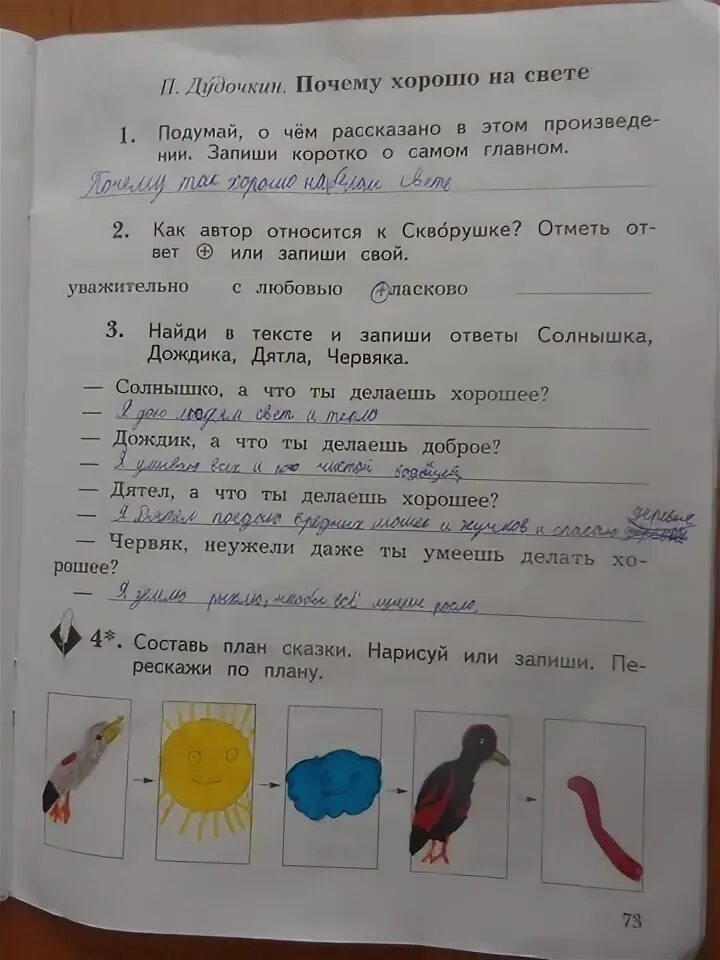 П. Ду́дочкин. Почему хорошо на свете
1. Подумай, о чём рассказано в этом произведе-
нии. Запиши коротко о самом главном.
Почему так хорошо на белом свете
2. Как автор относится к Скво́рушке? Отметь от-
вет ⊕ или запиши свой.
уважительно с любовью ⊕ ласково
3. Найди в тексте и запиши ответы Солнышка,
Дождика, Дятла, Червяка.
— Солнышко, а что ты делаешь хорошее?
— Я даю людям свет и тепло
— Дождик, а что ты делаешь доброе?
— Я умываю всех и пою чистой водой
— Дятел, а что ты делаешь хорошее?
— Я Дятел поедаю вредных мошек и жучков и спасаю деревья
— Червяк, неужели даже ты умеешь делать хо-
рошее?
— Я землю рыхлю, чтобы всё лучше росло.
4*. Составь план сказки. Нарисуй или запиши. Пе-
рескажи по плану.
73